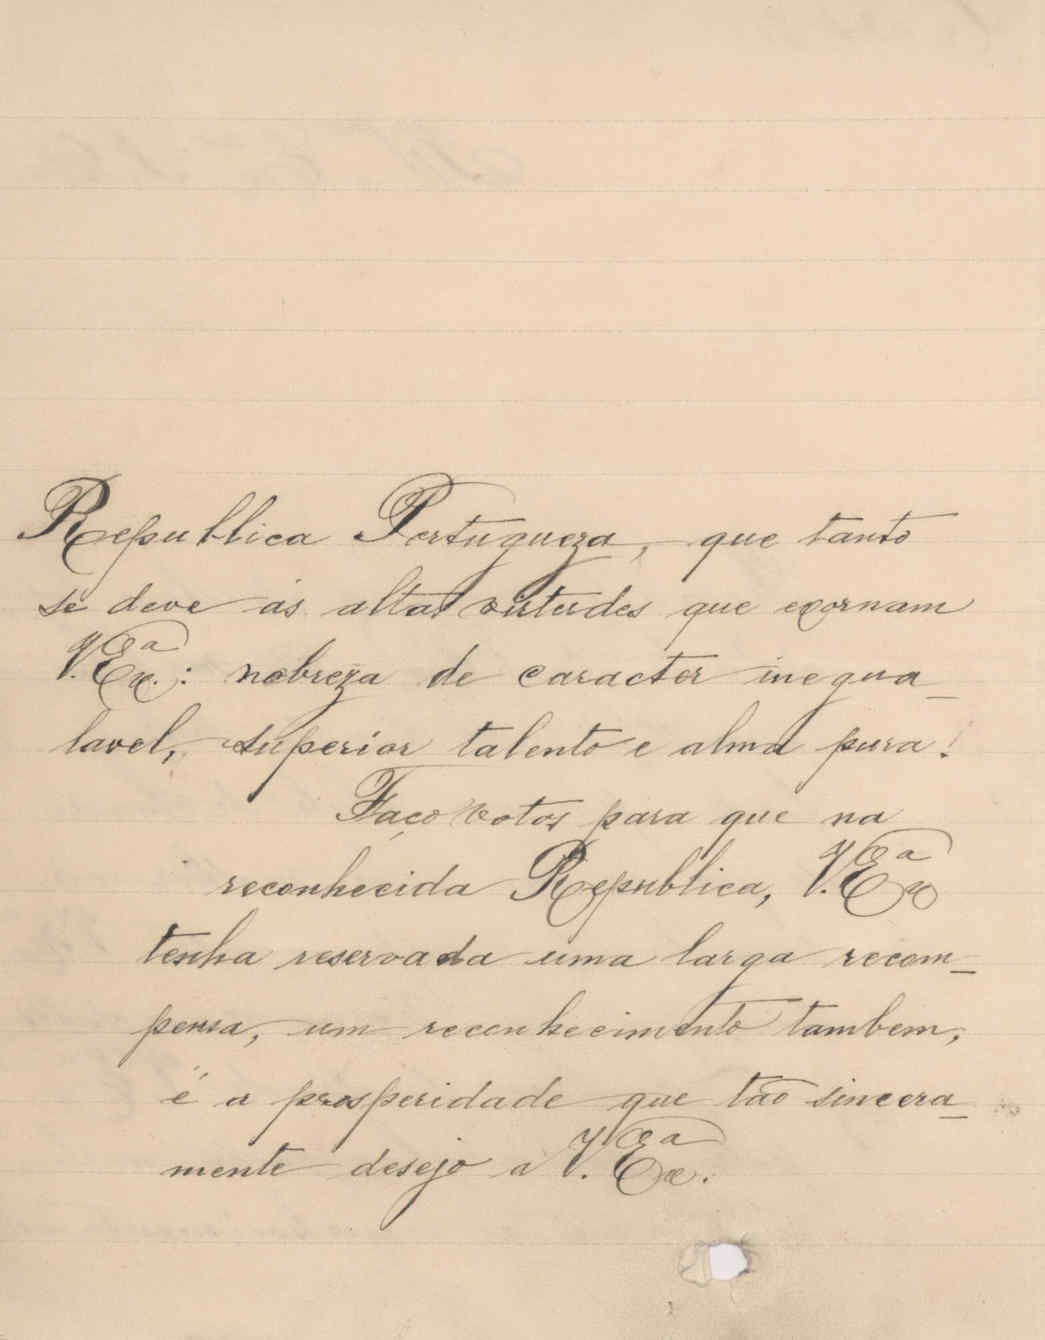 Republica Portugueza, que tanto
se deve ás altas virtudes que exornam
V. Exª.: nobreza de caracter inegua_
lavel, superior talento e alma pura!
Faço votos para que na
reconhecida Republica, V. Exª
tenha reservada uma larga recom_
pensa, um reconhecimento tambem,
é a prosperidade que tão sincera_
mente desejo a V. Exª.